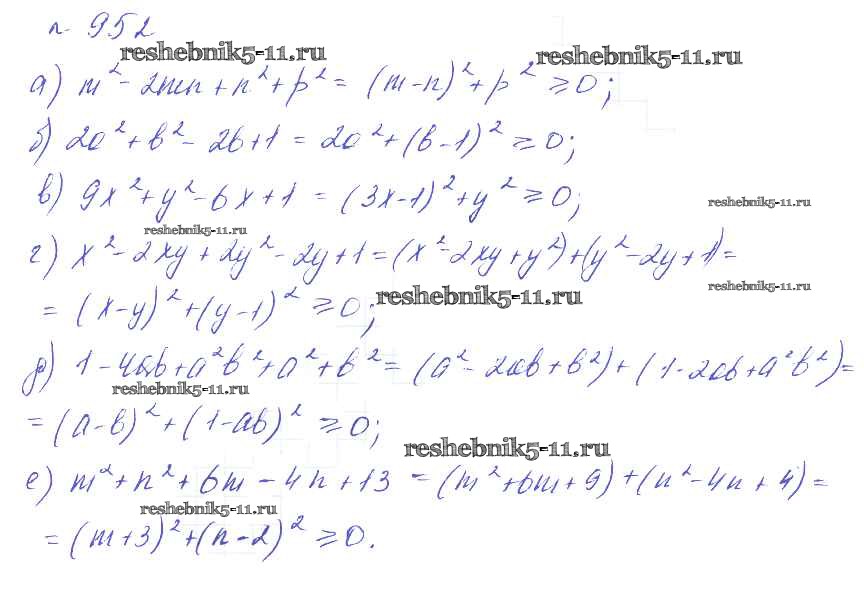 n 952
reshebnik5-11.ru reshebnik5-11.ru
а) m² - 2mn + n² + p² = (m-n)² + p² ≥ 0;
б) 2a² + b² - 2b + 1 = 2a² + (b-1)² ≥ 0;
в) 9x² + y² - 6x + 1 = (3x-1)² + y² ≥ 0;
reshebnik5-11.ru
reshebnik5-11.ru
г) x² - 2xy + 2y² - 2y + 1 = (x² - 2xy + y²) + (y² - 2y + 1) =
reshebnik5-11.ru
= (x-y)² + (y-1)² ≥ 0;
reshebnik5-11.ru
д) 1 - 4ab + a²b² + a² + b² = (a² - 2ab + b²) + (1 - 2ab + a²b²) =
reshebnik5-11.ru
= (a-b)² + (1-ab)² ≥ 0;
reshebnik5-11.ru
е) m² + n² + 6m - 4n + 13 = (m² + 6m + 9) + (n² - 4n + 4) =
reshebnik5-11.ru
= (m+3)² + (n-2)² ≥ 0.